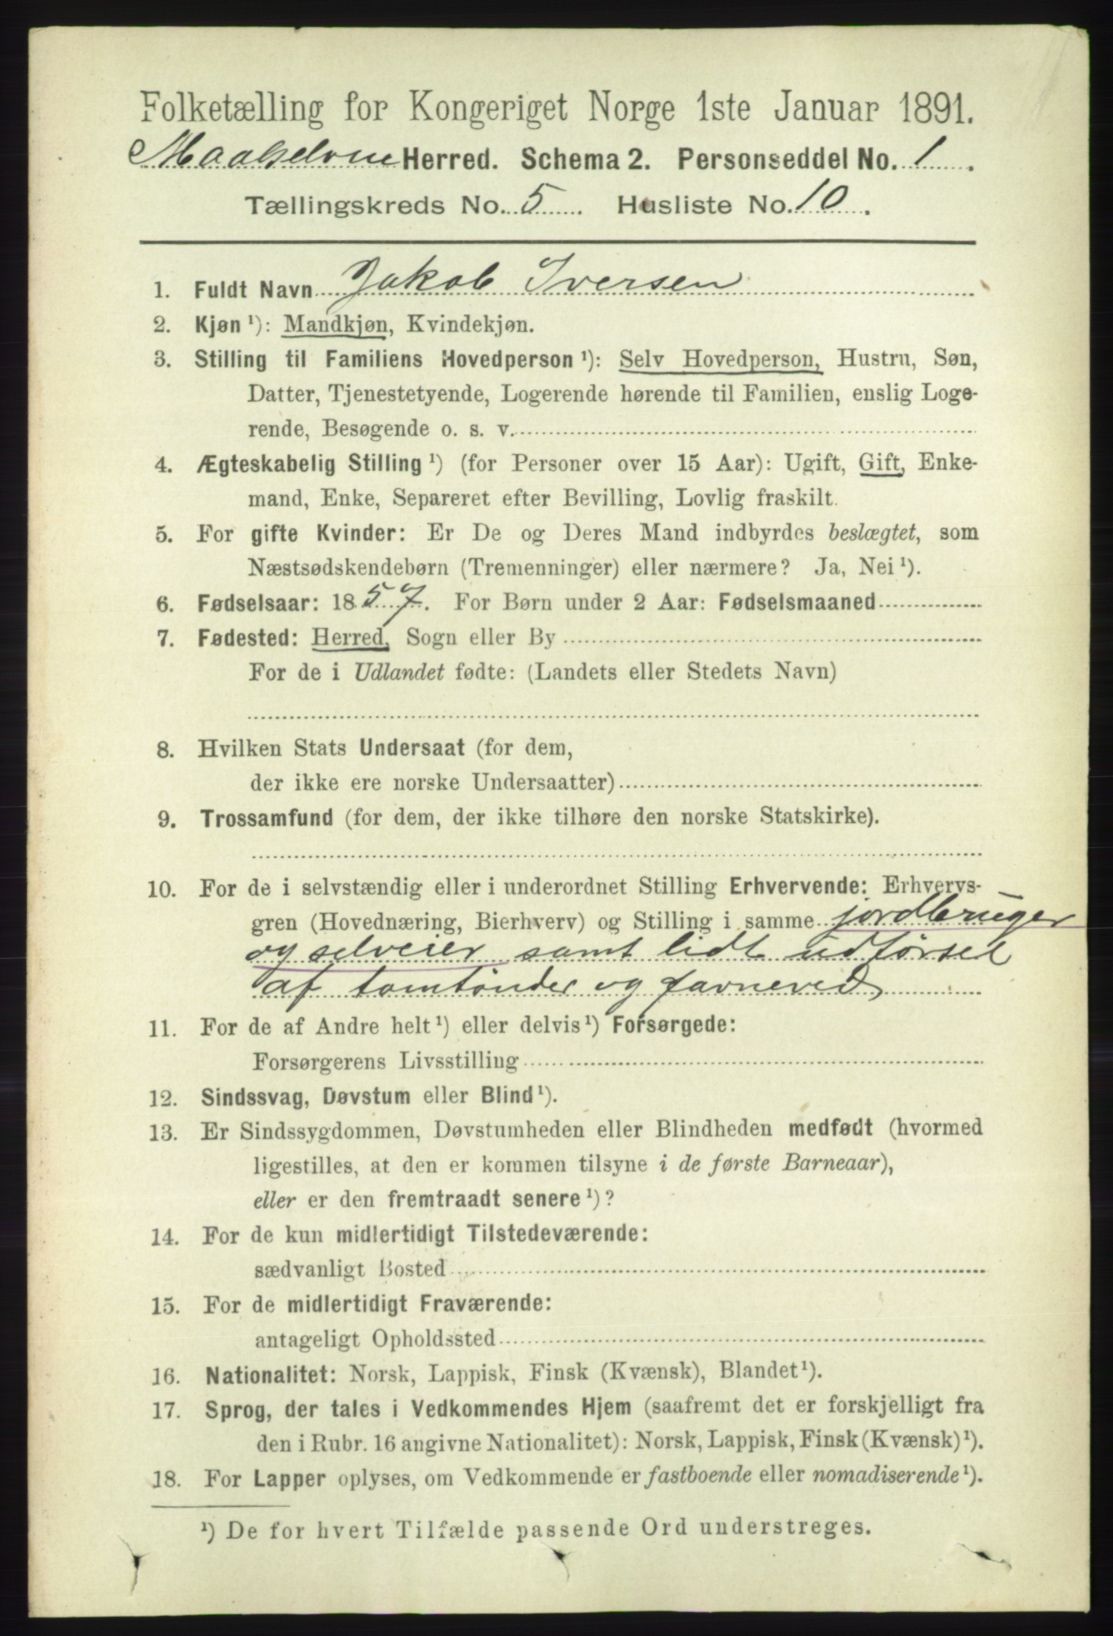 Folketælling for Kongeriget Norge 1ste Januar 1891.
Maalselven Herred. Schema 2. Personseddel No. 1.
Tællingskreds No. 5. Husliste No. 10.
1. Fuldt Navn Jakob Iversen
2. Kjøn ¹): Mandkjøn, Kvindekjøn.
3. Stilling til Familiens Hovedperson ¹): Selv Hovedperson, Hustru, Søn,
Datter, Tjenestetyende, Logerende hørende til Familien, enslig Loge-
rende, Besøgende o. s. v.
4. Ægteskabelig Stilling ¹) (for Personer over 15 Aar): Ugift, Gift, Enke-
mand, Enke, Separeret efter Bevilling, Lovlig fraskilt.
5. For gifte Kvinder: Er De og Deres Mand indbyrdes beslægtet, som
Næstsødskendebørn (Tremenninger) eller nærmere? Ja, Nei ¹).
6. Fødselsaar: 1857. For Børn under 2 Aar: Fødselsmaaned
7. Fødested: Herred, Sogn eller By
For de i Udlandet fødte: (Landets eller Stedets Navn)
8. Hvilken Stats Undersaat (for dem,
der ikke ere norske Undersaatter)
9. Trossamfund (for dem, der ikke tilhøre den norske Statskirke).
10. For de i selvstændig eller i underordnet Stilling Erhvervende: Erhvervs-
gren (Hovednæring, Bierhverv) og Stilling i samme jordbruger
og selveier samt lidt udførsel
af tomtønder og favneved
11. For de af Andre helt ¹) eller delvis ¹) Forsørgede:
Forsørgerens Livsstilling
12. Sindssvag, Døvstum eller Blind ¹).
13. Er Sindssygdommen, Døvstumheden eller Blindheden medfødt (hvormed
ligestilles, at den er kommen tilsyne i de første Barneaar),
eller er den fremtraadt senere ¹)?
14. For de kun midlertidigt Tilstedeværende:
sædvanligt Bosted
15. For de midlertidigt Fraværende:
antageligt Opholdssted
16. Nationalitet: Norsk, Lappisk, Finsk (Kvænsk), Blandet ¹).
17. Sprog, der tales i Vedkommendes Hjem (saafremt det er forskjelligt fra
den i Rubr. 16 angivne Nationalitet): Norsk, Lappisk, Finsk (Kvænsk) ¹).
18. For Lapper oplyses, om Vedkommende er fastboende eller nomadiserende ¹).
¹) De for hvert Tilfælde passende Ord understreges.